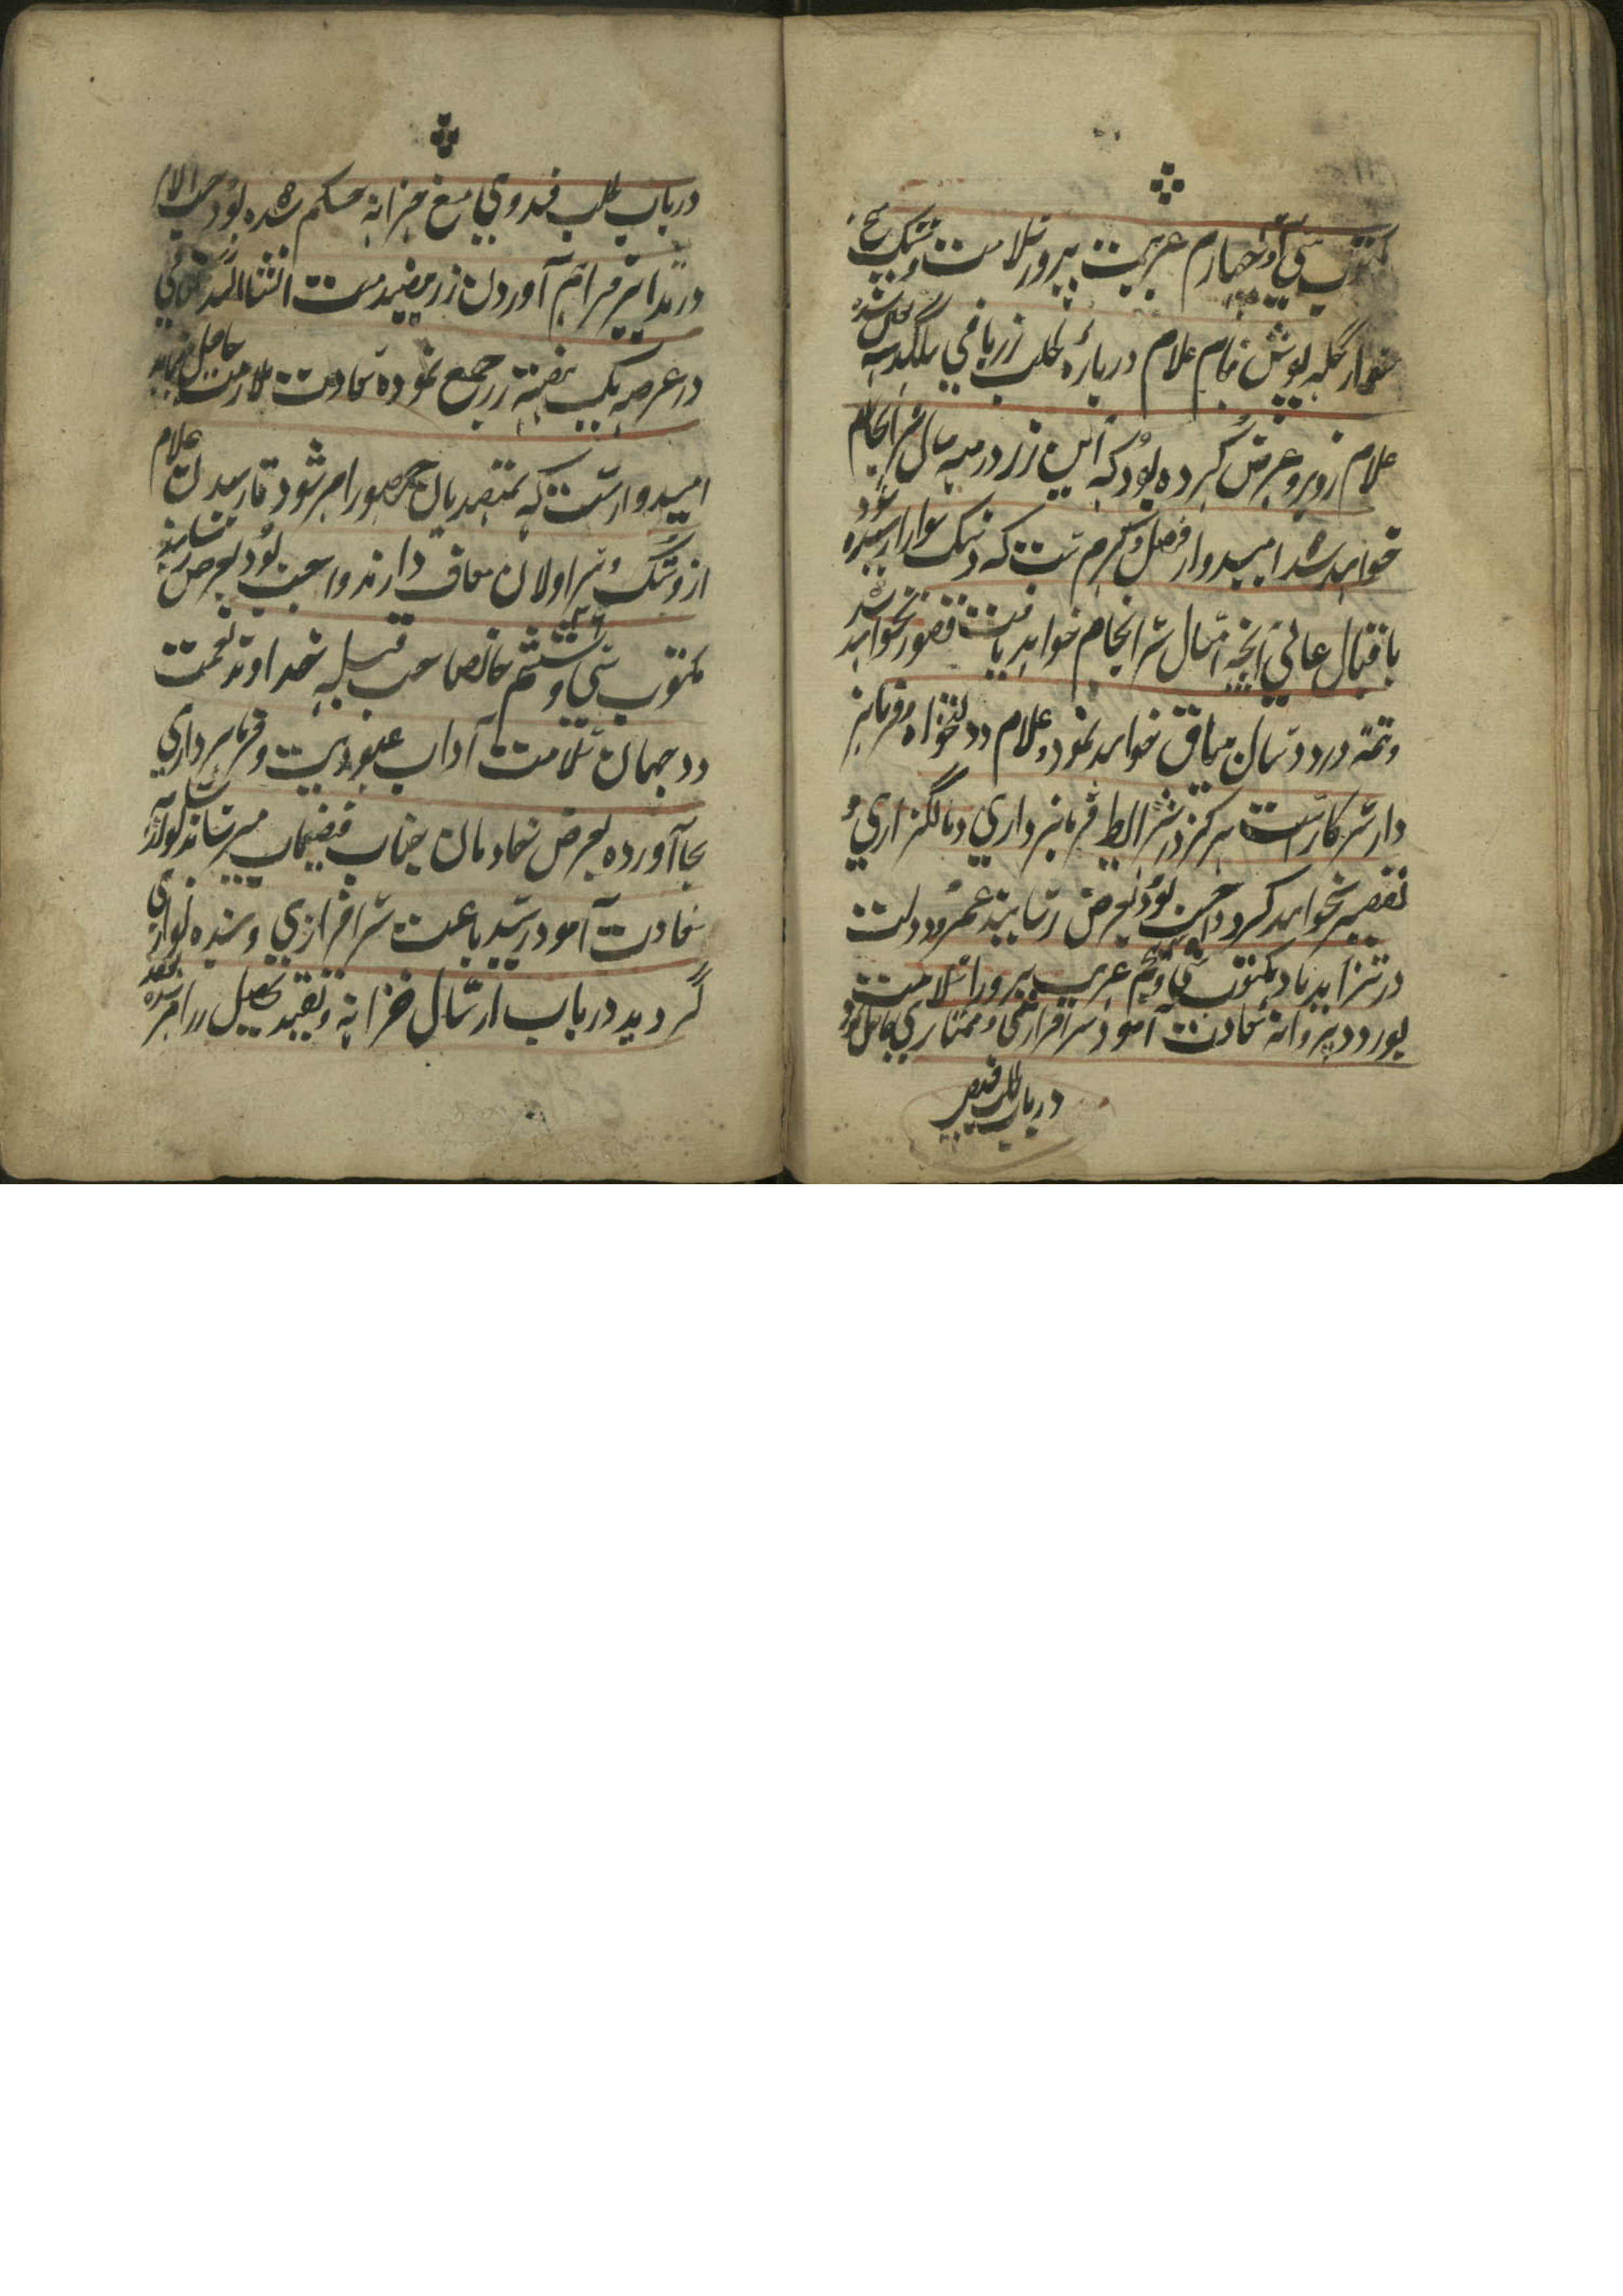 مکتوب سی و چهارم غریب پرور سلامت دستک پنج
سوار گله پوش بنام غلام درباره طلب زر باقی
غلام روبرو عرض کرده بود که این زر در سه سال سرانجام
خواهد شد امیدوار فضل و کرم ست که دستک سواران
باقبال عالی آنچه امسال سرانجام خواهد یافت قصور نخواهد شد
و تتمه در دو سال میباق خواهد نمود و غلام دولتخواه و فرمانبر
دار سرکارست هرگز در شرایط فرمانبرداری و مالگزاری
تقصیر نخواهد کرد واجب بود بعرض رسانید عمر و دولت
در تزاید باد مکتوب سی و پنجم غریب پرور سلامت
بورود پروانه سعادت آمود سرافرازی و ممتازی حاصل نمود
در باب طلب فقیر
در باب طلب فدوی مع خزانه حکم شده بود حسب الامر
در تدابیر فراهم آوردن زر مقید ست انشاالله تعالی
در عرصه یک هفته زر جمع نموده سعادت ملازمت حاصل نماید
امیدوارست که بمتصدیان حضور امر شود تا رسیدن غلام
از دستک و سزاولان معاف دارند واجب بود بعرض رسانید
مکتوب سی و ششم خانصاحب قبله خداوند نعمت
دو جهان سلامت آداب عبودیت و فرمانبرداری
بجا آورده بعرض خادمان جناب فیضماب میرساند
سعادت آمود رسید باعث سرافرازی و بنده نوازی
گردید در باب ارسال خزانه و تقید تحصیل زر امر شده